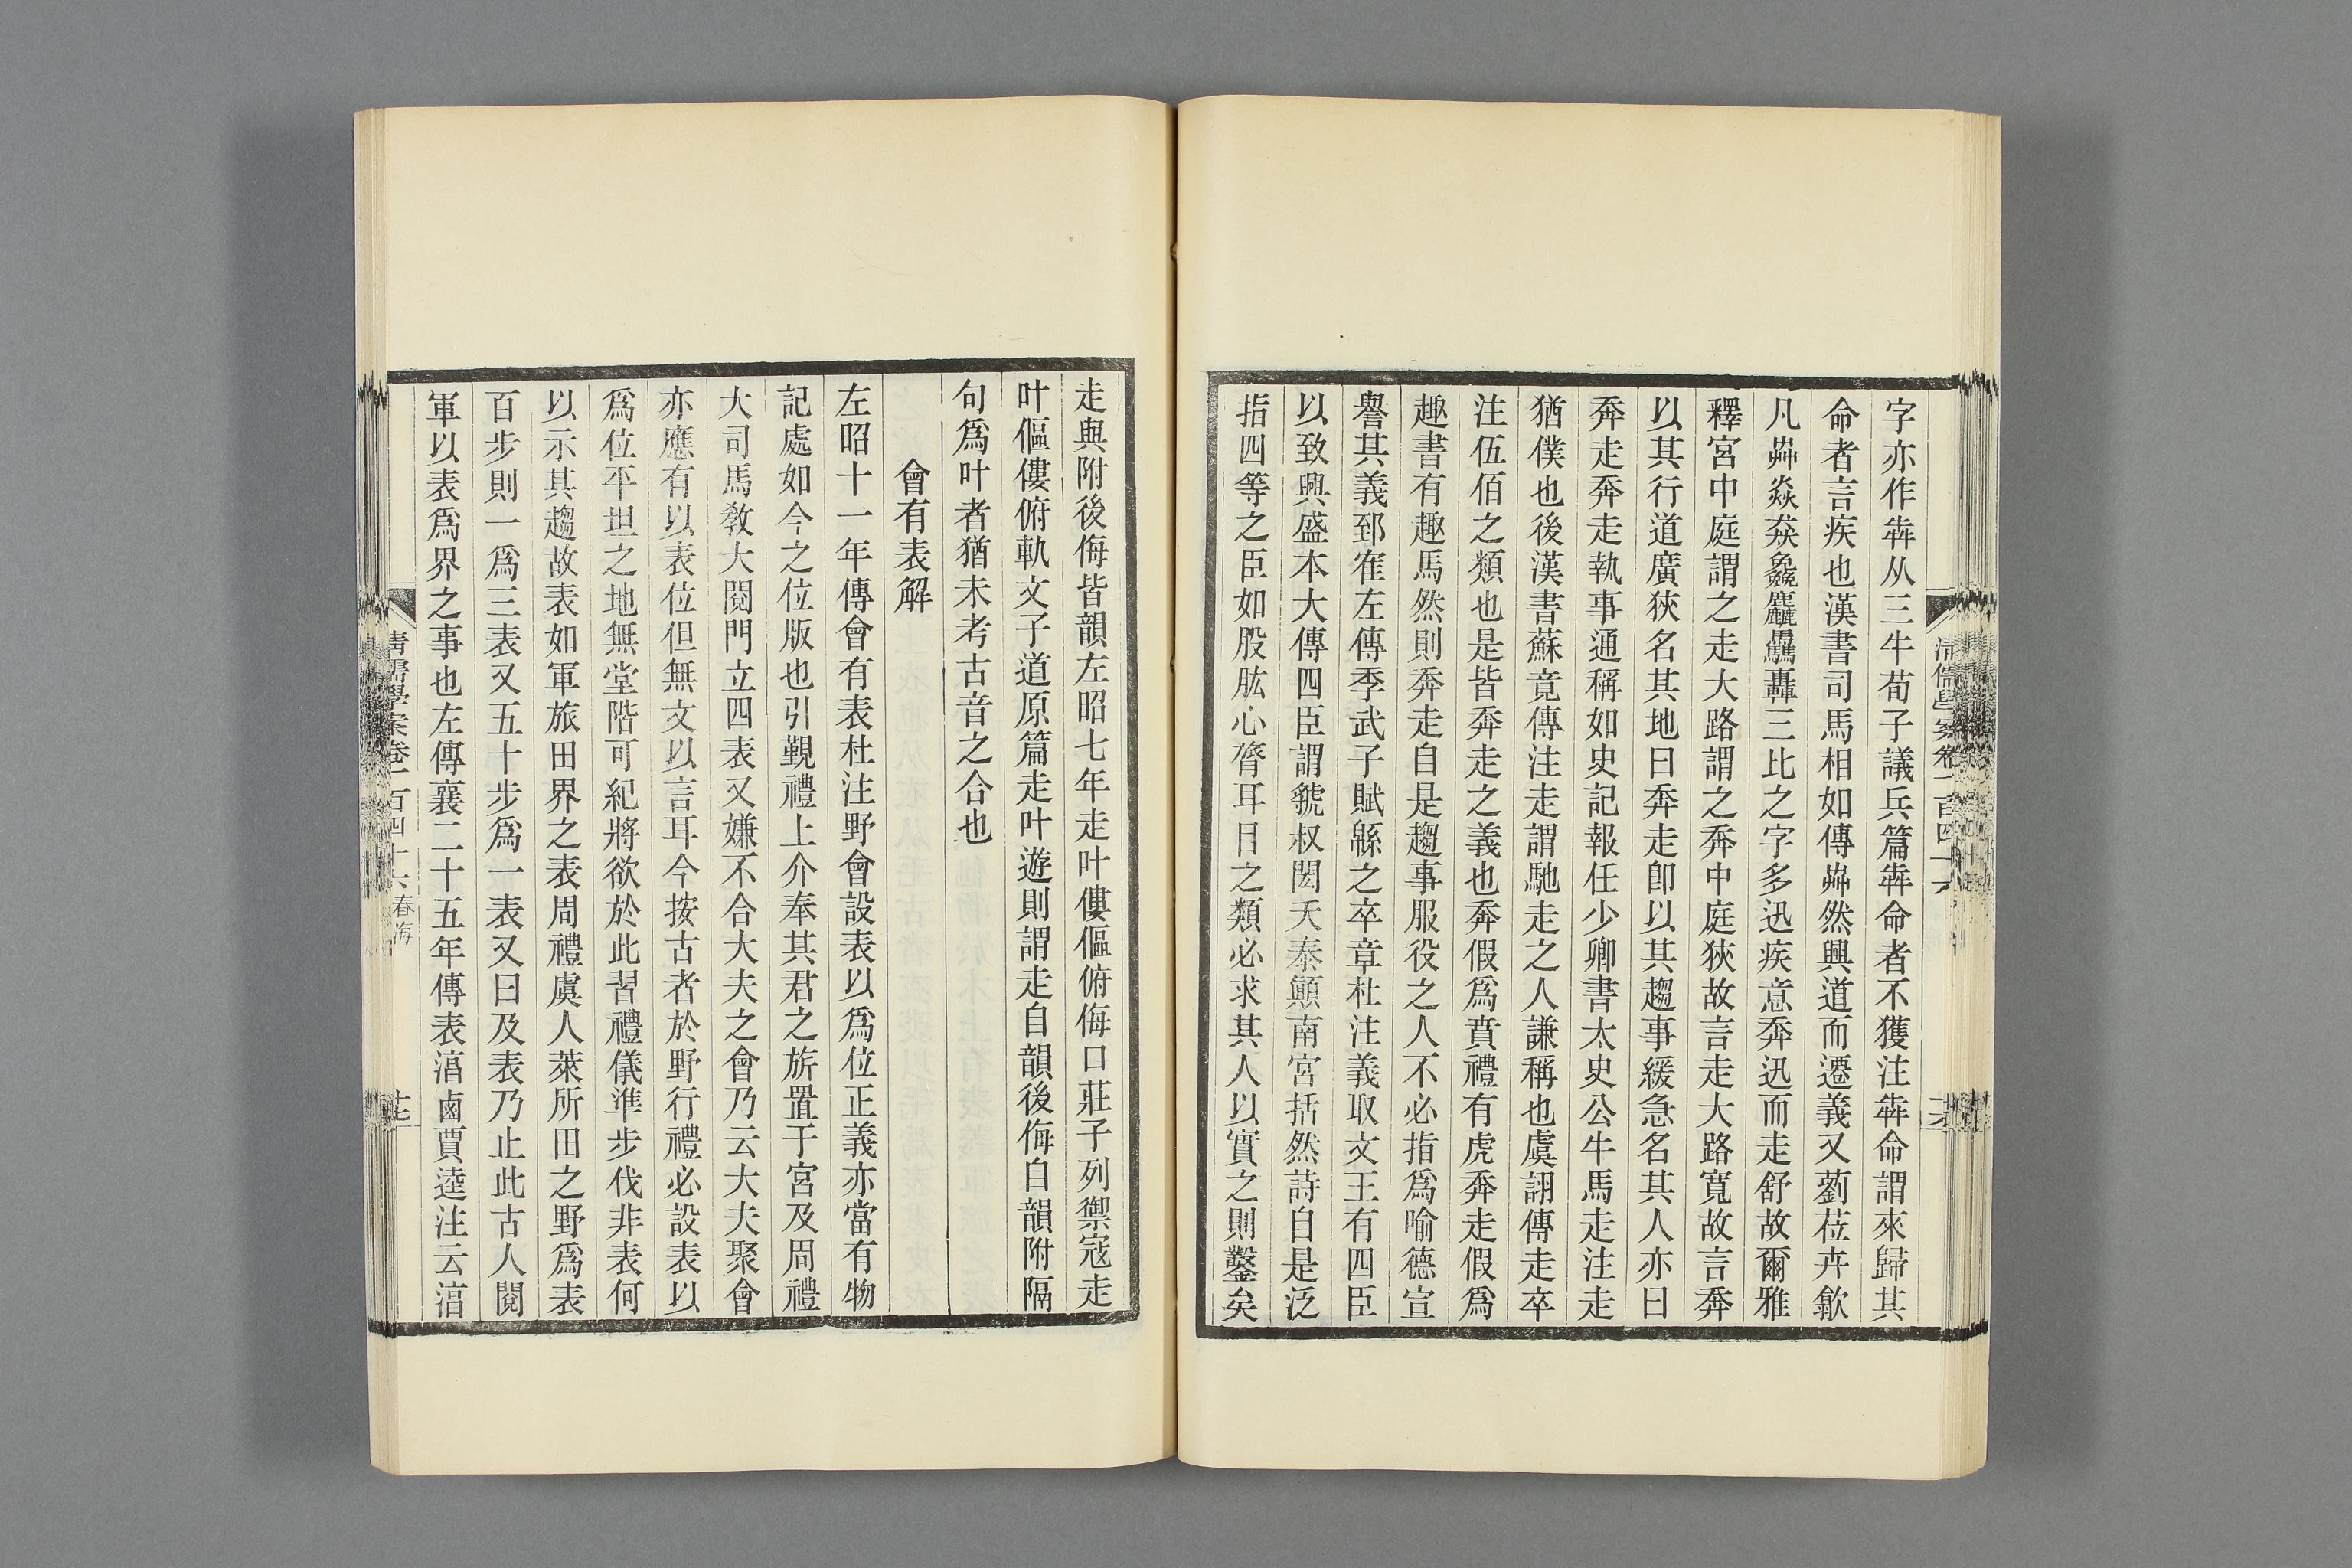 清儒學案卷一百四十六
字亦作犇从三牛荀子議兵篇犇命者不獲注犇命謂來歸其
命者言疾也漢書司馬相如傳焱然興道而遷義又藰莅卉歙
凡芔焱猋鱻麤驫轟三比之字多迅疾意奔迅而走舒故爾雅
釋宮中庭謂之走大路謂之奔中庭狹故言走大路寬故言奔
以其行道廣狹名其地曰奔走卽以其趨事緩急名其人亦曰
奔走奔走執事通稱如史記報任少卿書太史公牛馬走注走
猶僕也後漢書蘇竟傳注走謂馳走之人謙稱也虞詡傳走卒
注伍佰之類也是皆奔走之義也奔假爲賁禮有虎奔走假爲
趣書有趣馬然則奔走自是趨事服役之人不必指爲喻德宣
譽其義郅隺左傳季武子賦緜之卒章杜注義取文王有四臣
以致興盛本大傳四臣謂虢叔閎夭泰顚南宮括然詩自是泛
指四等之臣如股肱心膂耳目之類必求其人以實之則鑿矣
走與附後侮皆韻左昭七年走叶僂傴俯侮口莊子列禦寇走
叶傴僂俯軌文子道原篇走叶遊則謂走自韻後侮自韻附隔
句爲叶者猶未考古音之合也
會有表解
左昭十一年傳會有表杜注野會設表以爲位正義亦當有物
記處如今之位版也引覲禮上介奉其君之旂置于宮及周禮
大司馬敎大閱門立四表又嫌不合大夫之會乃云大夫聚會
亦應有以表位但無文以言耳今按古者於野行禮必設表以
爲位平坦之地無堂階可紀將欲於此習禮儀準步伐非表何
以示其趨故表如軍旅田界之表周禮虞人萊所田之野爲表
百步則一爲三表又五十步爲一表又曰及表乃止此古人閱
軍以表爲界之事也左傳襄二十五年傳表㵝鹵賈逵注云㵝
清儒學案卷一百四十六 春海
十七